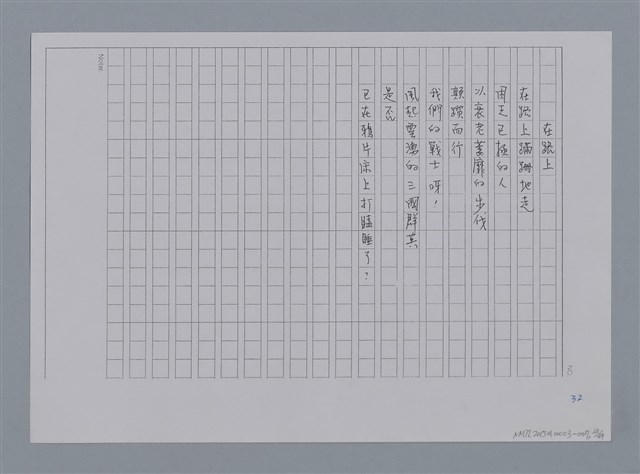 在路上
在路上蹣跚地走
困乏已極的人
以衰老萎靡的步伐
顛躓而行
我們的戰士呀！
風起雲湧的三國群英
是否
已在鴉片床上打瞌睡了？
Note
32